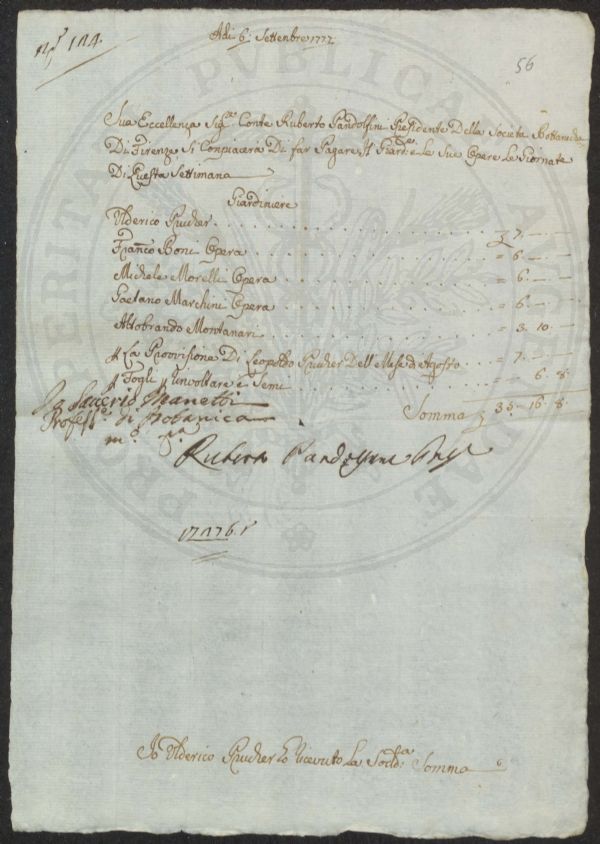 N° 124.
Adi 6: Settembre 1772
56
Sua Eccellenza Sig.re Conte Ruberto Pandolfini Presidente Della Societa Bottanicha
Di Firenze, Si Conpiacera Di far Pagare Al Giard.re e le Sue Opere Le Giornate
Di Questa Settimana
Giardiniere
Ulderico Prucher . . . . . . . . . . £ 7. — —
Franc.o Boni Opera . . . . . . . . . = 6. — —
Michele Morelli Opera . . . . . . . . = 6. — —
Gaetano Marchini Opera . . . . . . . = 6. — —
Aldobrando Montanari . . . . . . . . = 3. 10. —
P La Provvisione Di Leopoldo Prucher Dell Mese di Agosto . . = 7. — —
P Fogli P Involtare i Semi . . . . . . = — 6. 8.
Somma £ 35. 16. 8.
D. Saverio Manetti
Profess.e di Botanica
m.o p.a
Ruberto Pandolfini
Io Ulderico Prucher ho Ricevuto La Sod.a Somma
PVBLICA